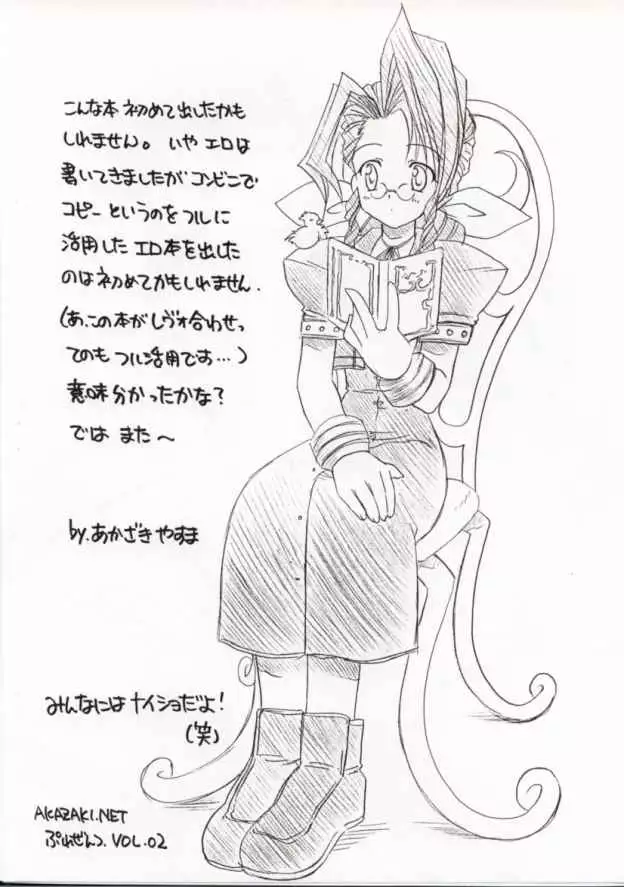 こんな本 初めて出したかも
しれません。 いや エロは
書いてきましたが コンビニで
コピー というのを フルに
活用した エロ本を出した
のは初めてかもしれません.
(あ、この本がレヴォ合わせっ
てのも フル活用です…)
意味分かったかな?
では また〜
by. あかざき やすま
みんなには ナイショだよ!
(笑)
AKAZAKI.NET
ぷれぜんつ. VOL.02